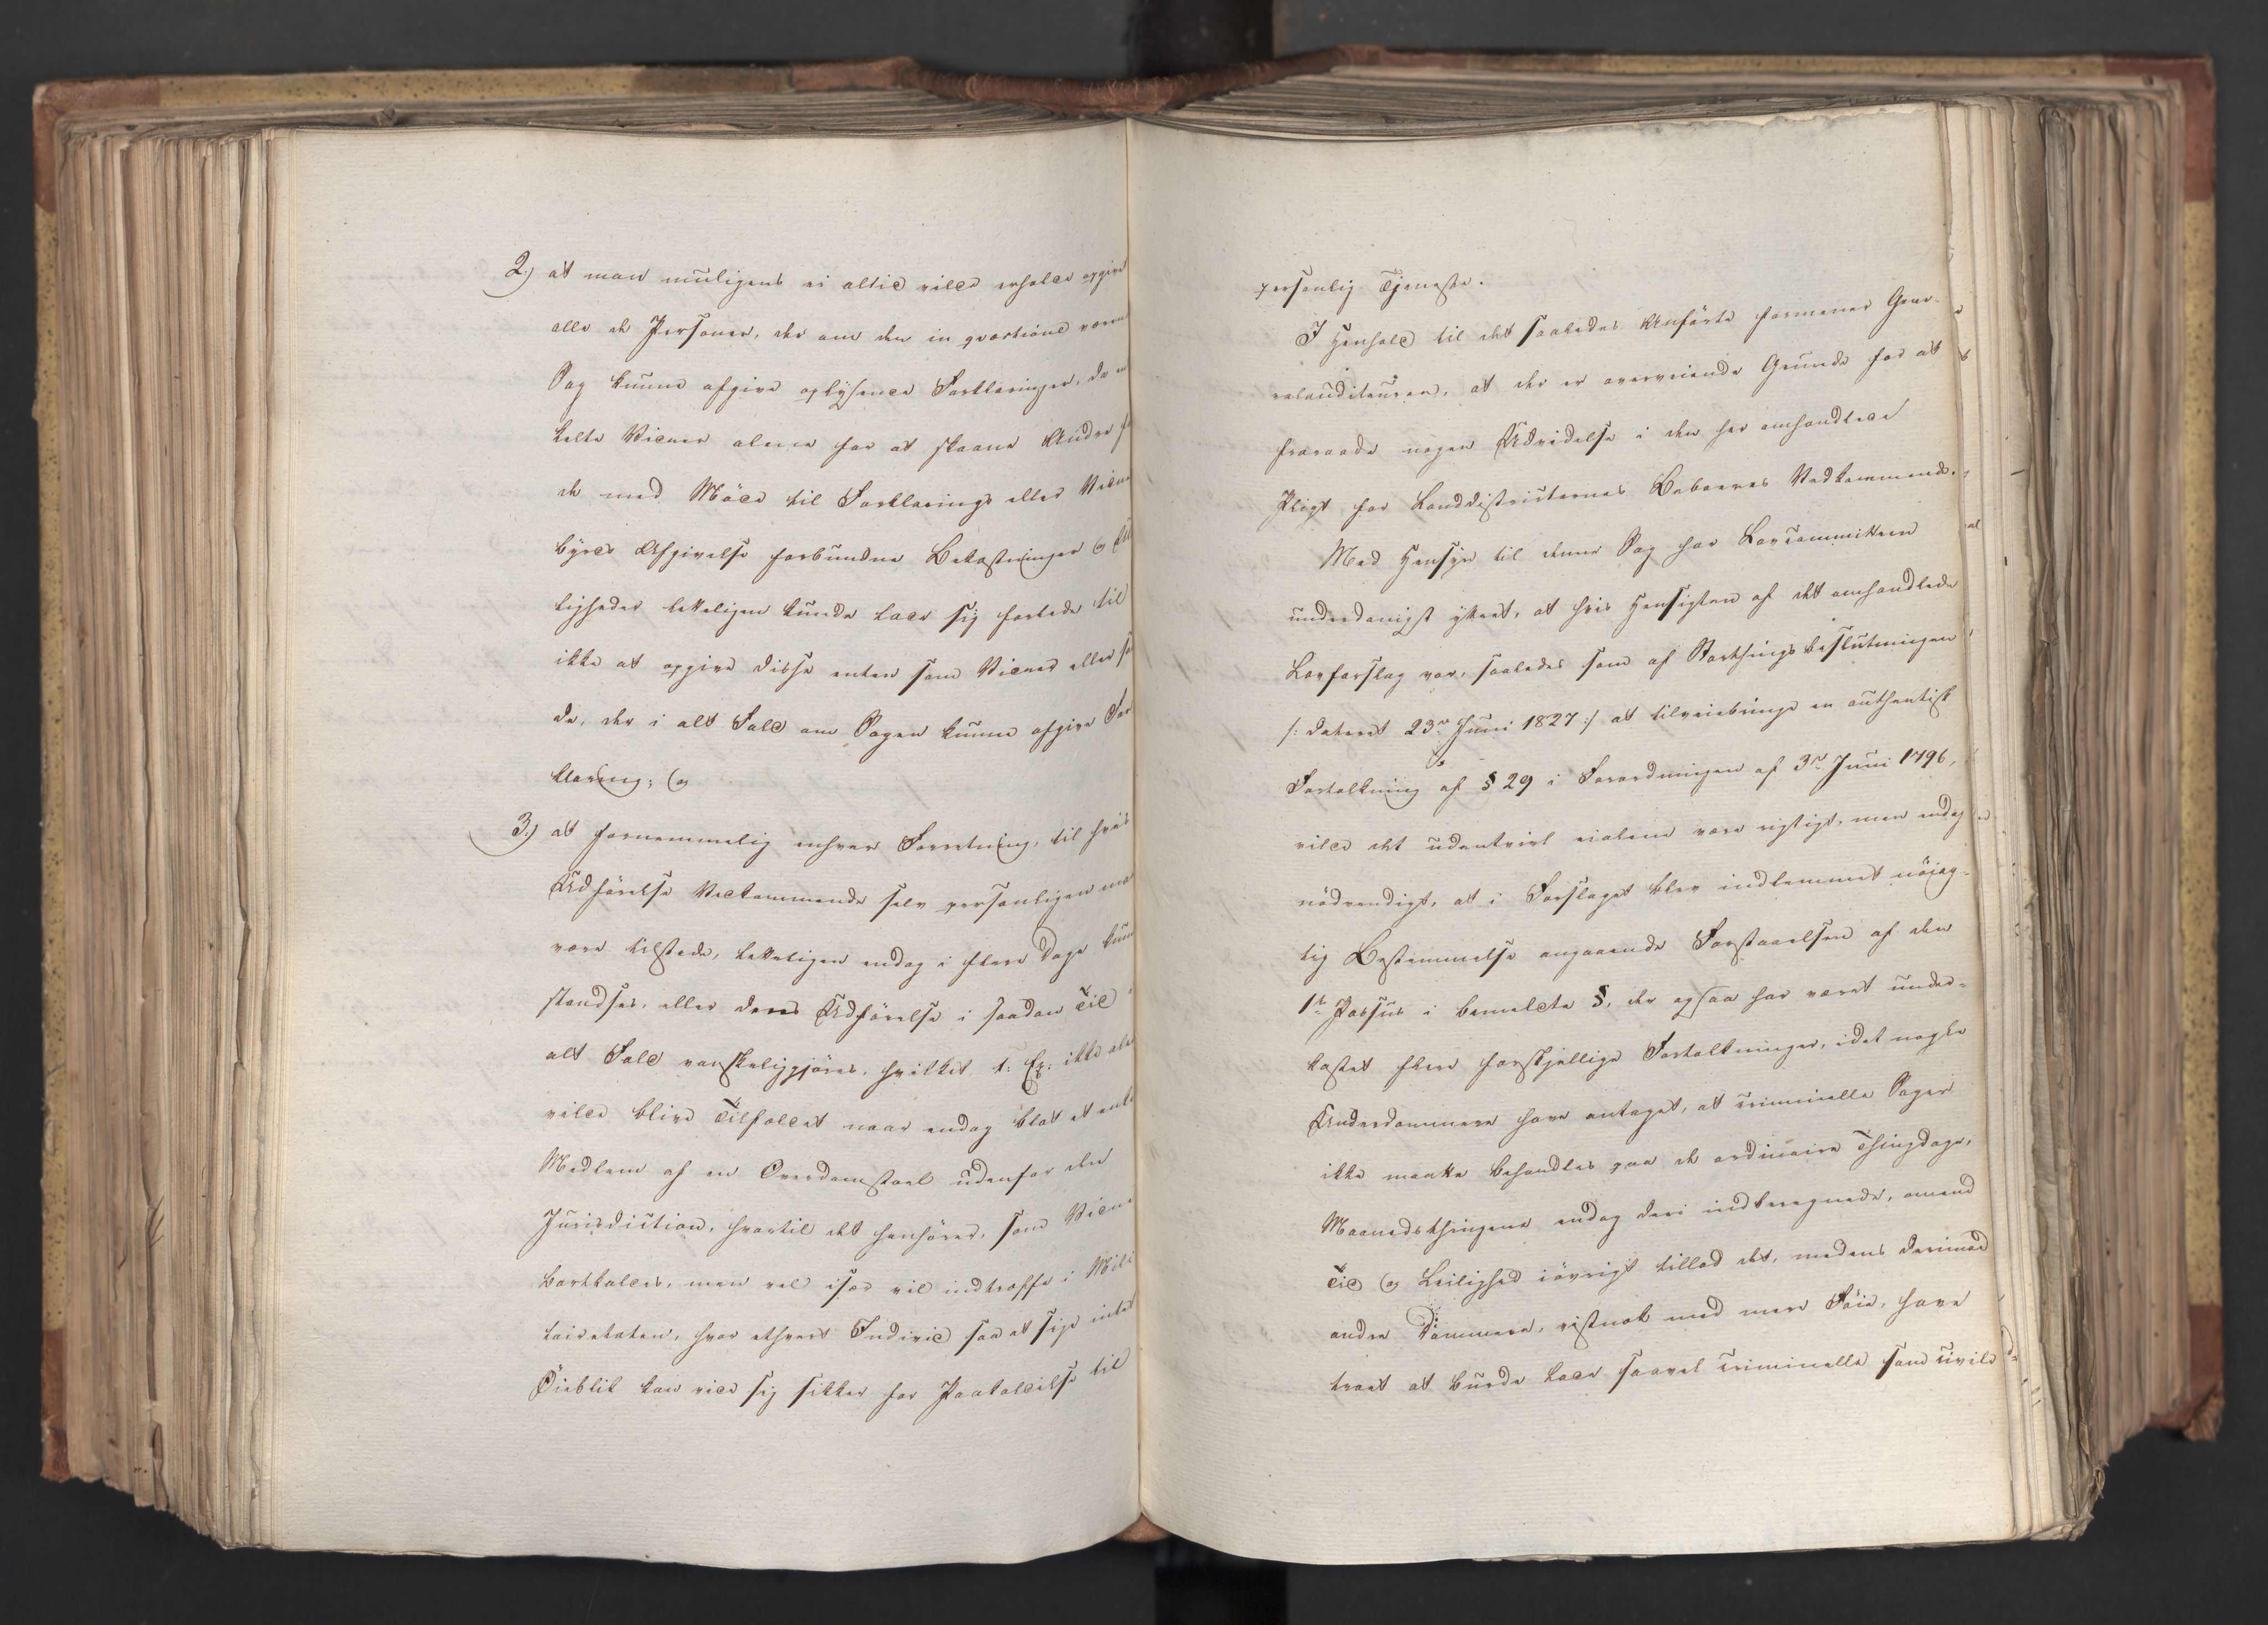 2.) at man muligens ei altid vilde erholde opgivet
alle de Personer, der om den in qvæstione være
Sag kunne afgive oplysende Forklaringer, da en
kelte Vidner alene for at skaane Andre
de med Möde til Forklarings eller Vidnes
byrds Afgivelse forbundne Bekostninger og
ligheder letteligen kunde lade sig forlede til
ikke at opgive disse enten som Vidner eller
de, der i alt Fald om Sagen kunne afgive For
klaring; og
3.) at fornemmelig enhver Forretning, til hvis
Udförelse Vedkommende selv personligen maa
være tilstede, letteligen endog i flere Dage kun
standses, eller deres Udförelse i saadan Tid
alt Fald vanskeliggjöres, hvilket t: Ex: ikke ale
vilde blive Tilfældet naar endog blot et enk
Medlem af en Overdomstoel udenfor den
Jurisdiction, hvortil det henhörer, som Vidne
bortkaldes, men vel især vil indtræffe i Mili
tairetaten, hvor ethvert Individ saa at sige intet
Öieblik kan vide sig sikker for Paakaldelse til
personlig Tjeneste.
I Henhold til det saaledes Anförte formener Gene-
ralauditeuren, at der er overveiende Grunde for at
fraraade nogen Udvidelse i den her omhandlede
Pligt for Landdistricternes Beboeres Vedkommende.
Med Hensyn til denne Sag har Lovcommitteen
underdanigst yttret, at hvis Hensigten af det omhandlede
Lovforslag var, saaledes som af Storthings beslutningen
/: dateret 23de Juni 1827 :/ at tilveiebringe en authentisk
Fortolkning af § 29 i Forordningen af 3de Juni 1796,
vilde det udentvivl eialene være rigtigt, men endog
nödvendigt, at i Forslaget blev indlemmet nöiag-
tig Bestemmelse angaaende Forstaaelsen af den
1ste Passus i bemeldte §, der ogsaa har været under-
kastet flere forskjellige Fortolkninger, idet nogle
Underdommere have antaget, at criminelle Sager
ikke maatte behandles paa de ordinaire Thingdage,
Maanedsthingene endog deri indberegnede, omend
Tid og Leilighed iövrigt tillod det, medens derimod
andre Dommere, vistnok med mere Föie, have
troet at burde lade saavel criminelle som civile